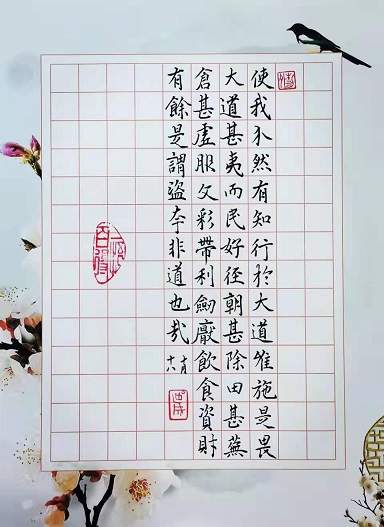 使我介然有知行於大道唯施是畏
大道甚夷而民好径朝甚除田甚蕪
倉甚虚服文彩帶利劍厭飲食資財
有餘是謂盜夸非道也哉